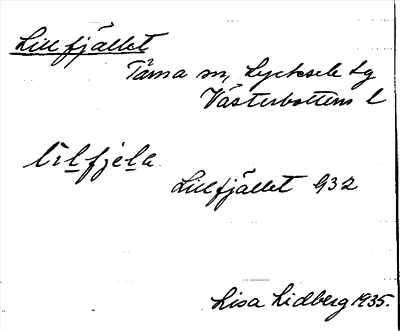 Lillfjället
Tärna sn, Lycksele lg
Västerbottens l
lilfjela
Lillfjället 932
Lisa Lidberg 1935.